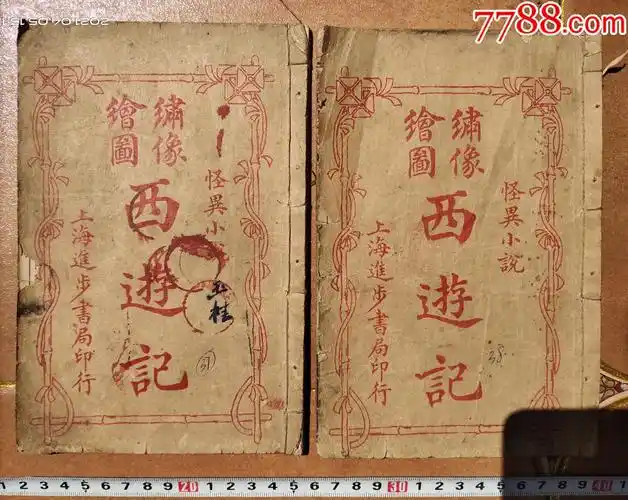 7788.com
怪異小
繡像
繪圖
西遊記
上海進步書局印行
桂
37
怪異小說
繡像
繪圖
西遊記
上海進步書局印行
38
1 2 3 4 5 6 7 8 9 20 1 2 3 4 5 6 7 8 9 30 1 2 3 4 5 6 7 8 9 40